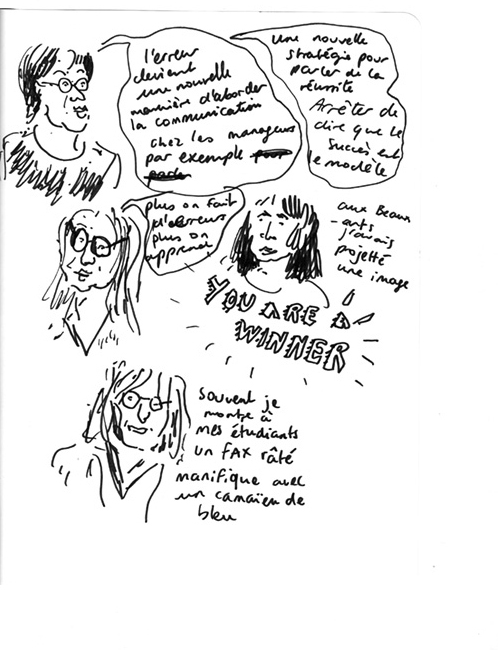 l'erreur
devient
une nouvelle
manière d'aborder
la communication
chez les manageurs
par exemple pour
parle
une nouvelle
stratégie pour
parler de la
réussite
Arrêter de
dire que le
succès est
le modèle
plus on fait
d'erreurs
plus on
apprend
aux Beaux
-arts
j'avais
projetté
une image
YOU ARE A
WINNER
souvent je
montre à
mes étudiants
un FAX râté
manifique avec
un camaïeu de
bleu